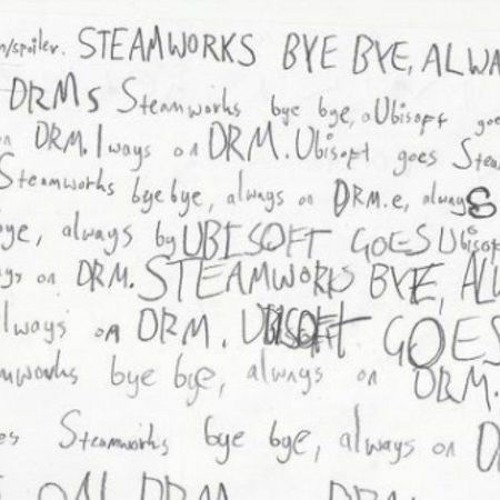 n/spoiler. STEAMWORKS BYE BYE, ALWA
DRMs Steamworks bye bye, aUbisoft goe
on DRM. lways on DRM. Ubisoft goes Stea
Steamworks bye bye, always on DRM.e, always
bye, always byUBISOFT GOES Ubisof
ys on DRM. STEAMWORKS BYE, ALW
lways on DRM. UBISOFT GOES
mworks bye bye, always on DRM.
es Steamworks bye bye, always on D
ON DRM DRM